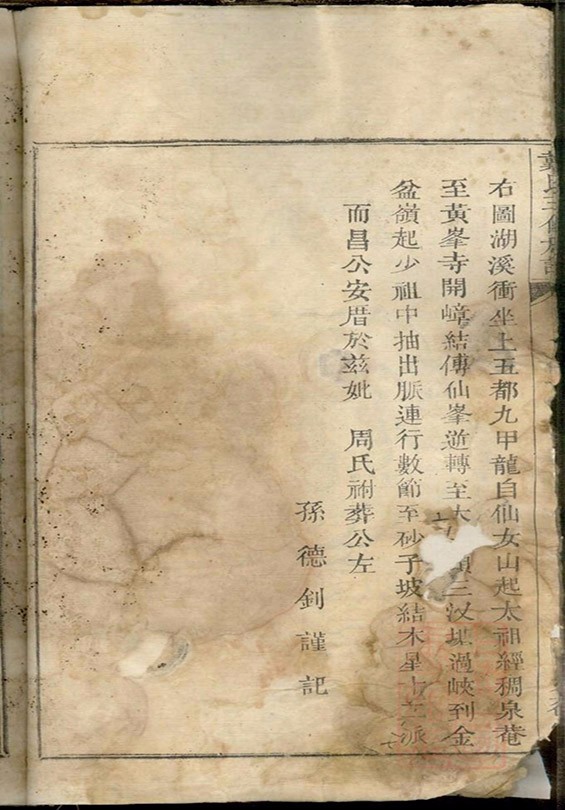 氏三修族譜
右圖湖溪衝坐上五都九甲龍自仙女山起太祖經稠泉菴
至黃峯寺開嶂結傅仙峯逆轉至大嶺三汊坵過峽到金
盆嶺起少祖中抽出脈連行數節至砂子坡結木星派
而昌公安厝於茲妣 周氏祔葬公左
孫德釗謹記